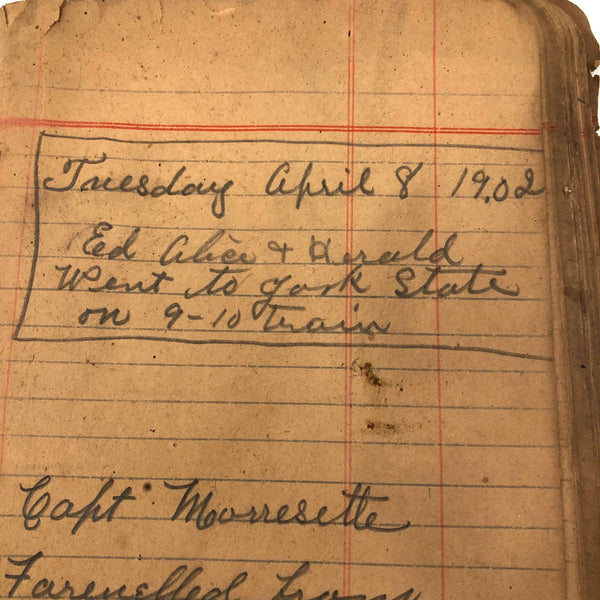 Tuesday April 8 19.02
Ed Alice & Herald
Went to york State
on 9-10 train
Capt Morresette
Farewelled from